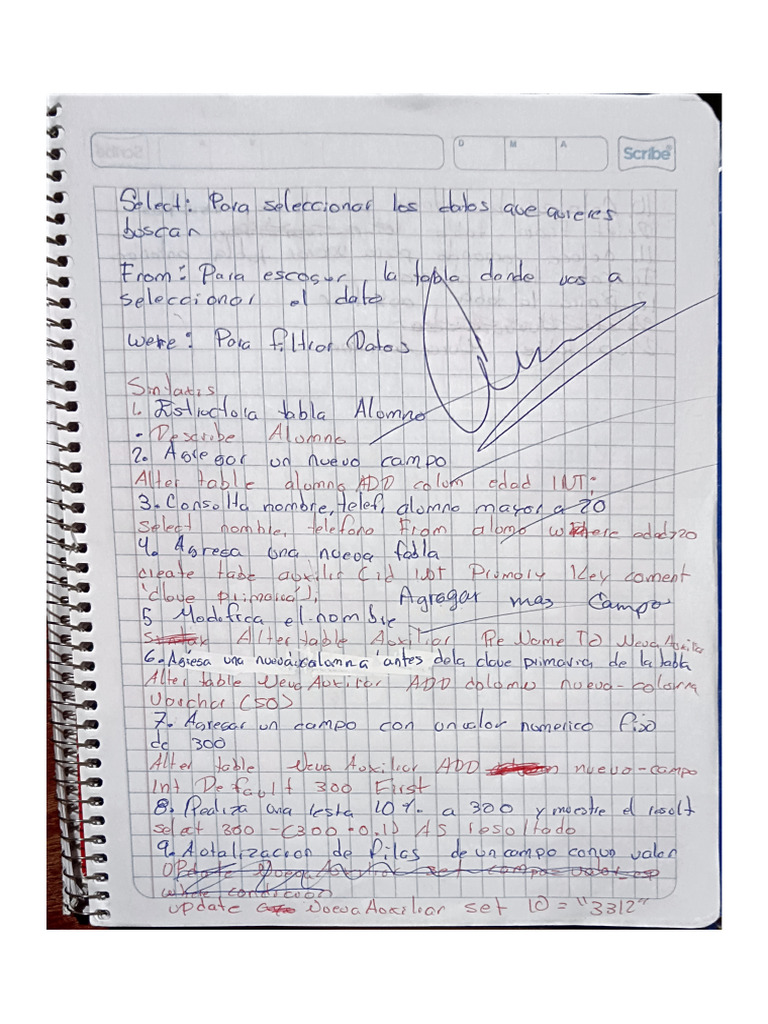 Scribe
D M A
Scribe
Select: Para seleccionar los datos que quieres
buscar
From: Para escoger la tabla donde vas a
seleccionar el dato
were: Para filtrar Datos
Sintaxis
1. Estructura tabla Alumno
- Describe Alumno
2. Agregar un nuevo campo
Alter table alumno ADD colum edad INT;
3. Consulta nombre, telef, alumno mayor a 20
Select nombre, telefono From alumo where edad>20
4. Agrega una nueva tabla
create table auxilir (id INT Primary Key coment
'clave primaria'); Agregar mas Campo
5 Modifica el nombre
Alter table Auxiliar ReName TO NevaAuxiliar
6. Agrega una nueva columna antes dela clave primaria de la tabla
Alter table NevaAuxiliar ADD columa nueva-colomna
Varchar (50)
7. Agregar un campo con un valor numerico fixo
de 300
Alter table Neva Auxiliar ADD nuevo-campo
Int Default 300 First
8. Realiza una resta 10% a 300 y muestre el result
select 300 - (300 * 0.1) AS resultado
9. Actualizacion de filas de un campo con un valor
update NuevaAuxiliar set ID = "3312"